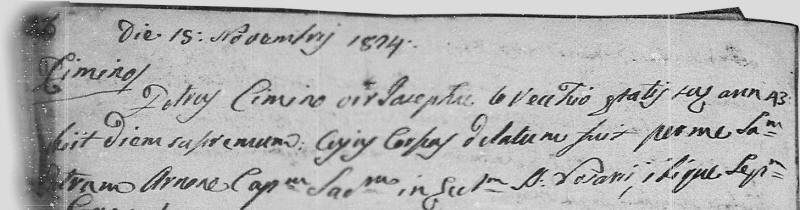 Die 15: Novembris 1824.
Cimino
Petrus Cimino vir Josephæ lo Vecchio ætatis suæ ann 43
obiit diem supremum, Cujus Corpus delatum fuit per me Sam
Arnone Capm Sacm in Eccm S. Rosarii, ibique Sepm